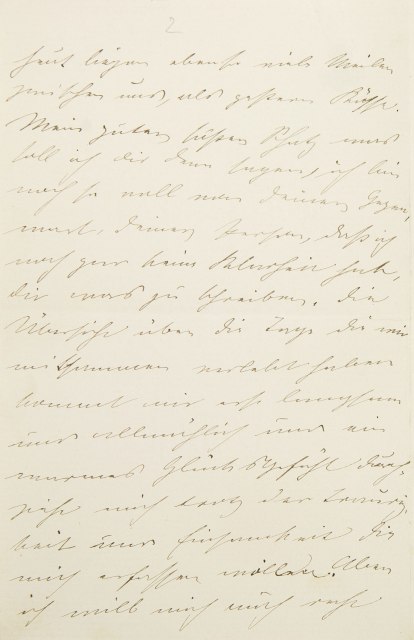 2
heut liegen ebenso viele Meilen
zwischen uns, als gestern Küsse.
Mein guter süßer Schatz was
soll ich dir denn sagen, ich bin
noch so voll von deiner Gegen-
wart, deiner Person, daß ich
noch gar keine Klarheit habe,
dir was zu schreiben. Die
Übersicht über die Tage die wir
mitsammen verlebt haben
kommt mir erst langsam
und allmählich und ein
warmes Glücksgefühl durch-
zieht mich trotz der Traurig-
keit und Einsamkeit die
mich erfassen wollen. Aber
ich will mich auch recht